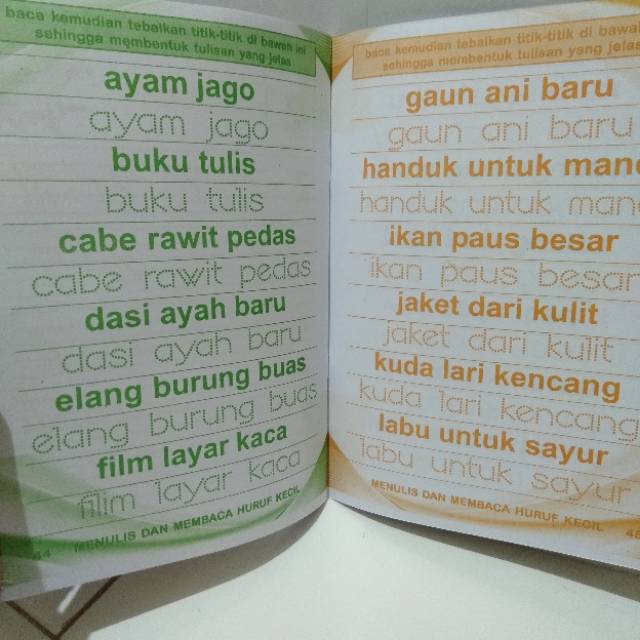 baca kemudian tebalkan titik-titik di bawah ini
sehingga membentuk tulisan yang jelas
ayam jago
ayam jago
buku tulis
buku tulis
cabe rawit pedas
cabe rawit pedas
dasi ayah baru
dasi ayah baru
elang burung buas
elang burung buas
film layar kaca
film layar kaca
44 MENULIS DAN MEMBACA HURUF KECIL
baca kemudian tebalkan titik-titik di bawah
sehingga membentuk tulisan yang jelas
gaun ani baru
gaun ani baru
handuk untuk mand
handuk untuk mand
ikan paus besar
ikan paus besar
jaket dari kulit
jaket dari kulit
kuda lari kencang
kuda lari kencang
labu untuk sayur
labu untuk sayur
MENULIS DAN MEMBACA HURUF KECIL